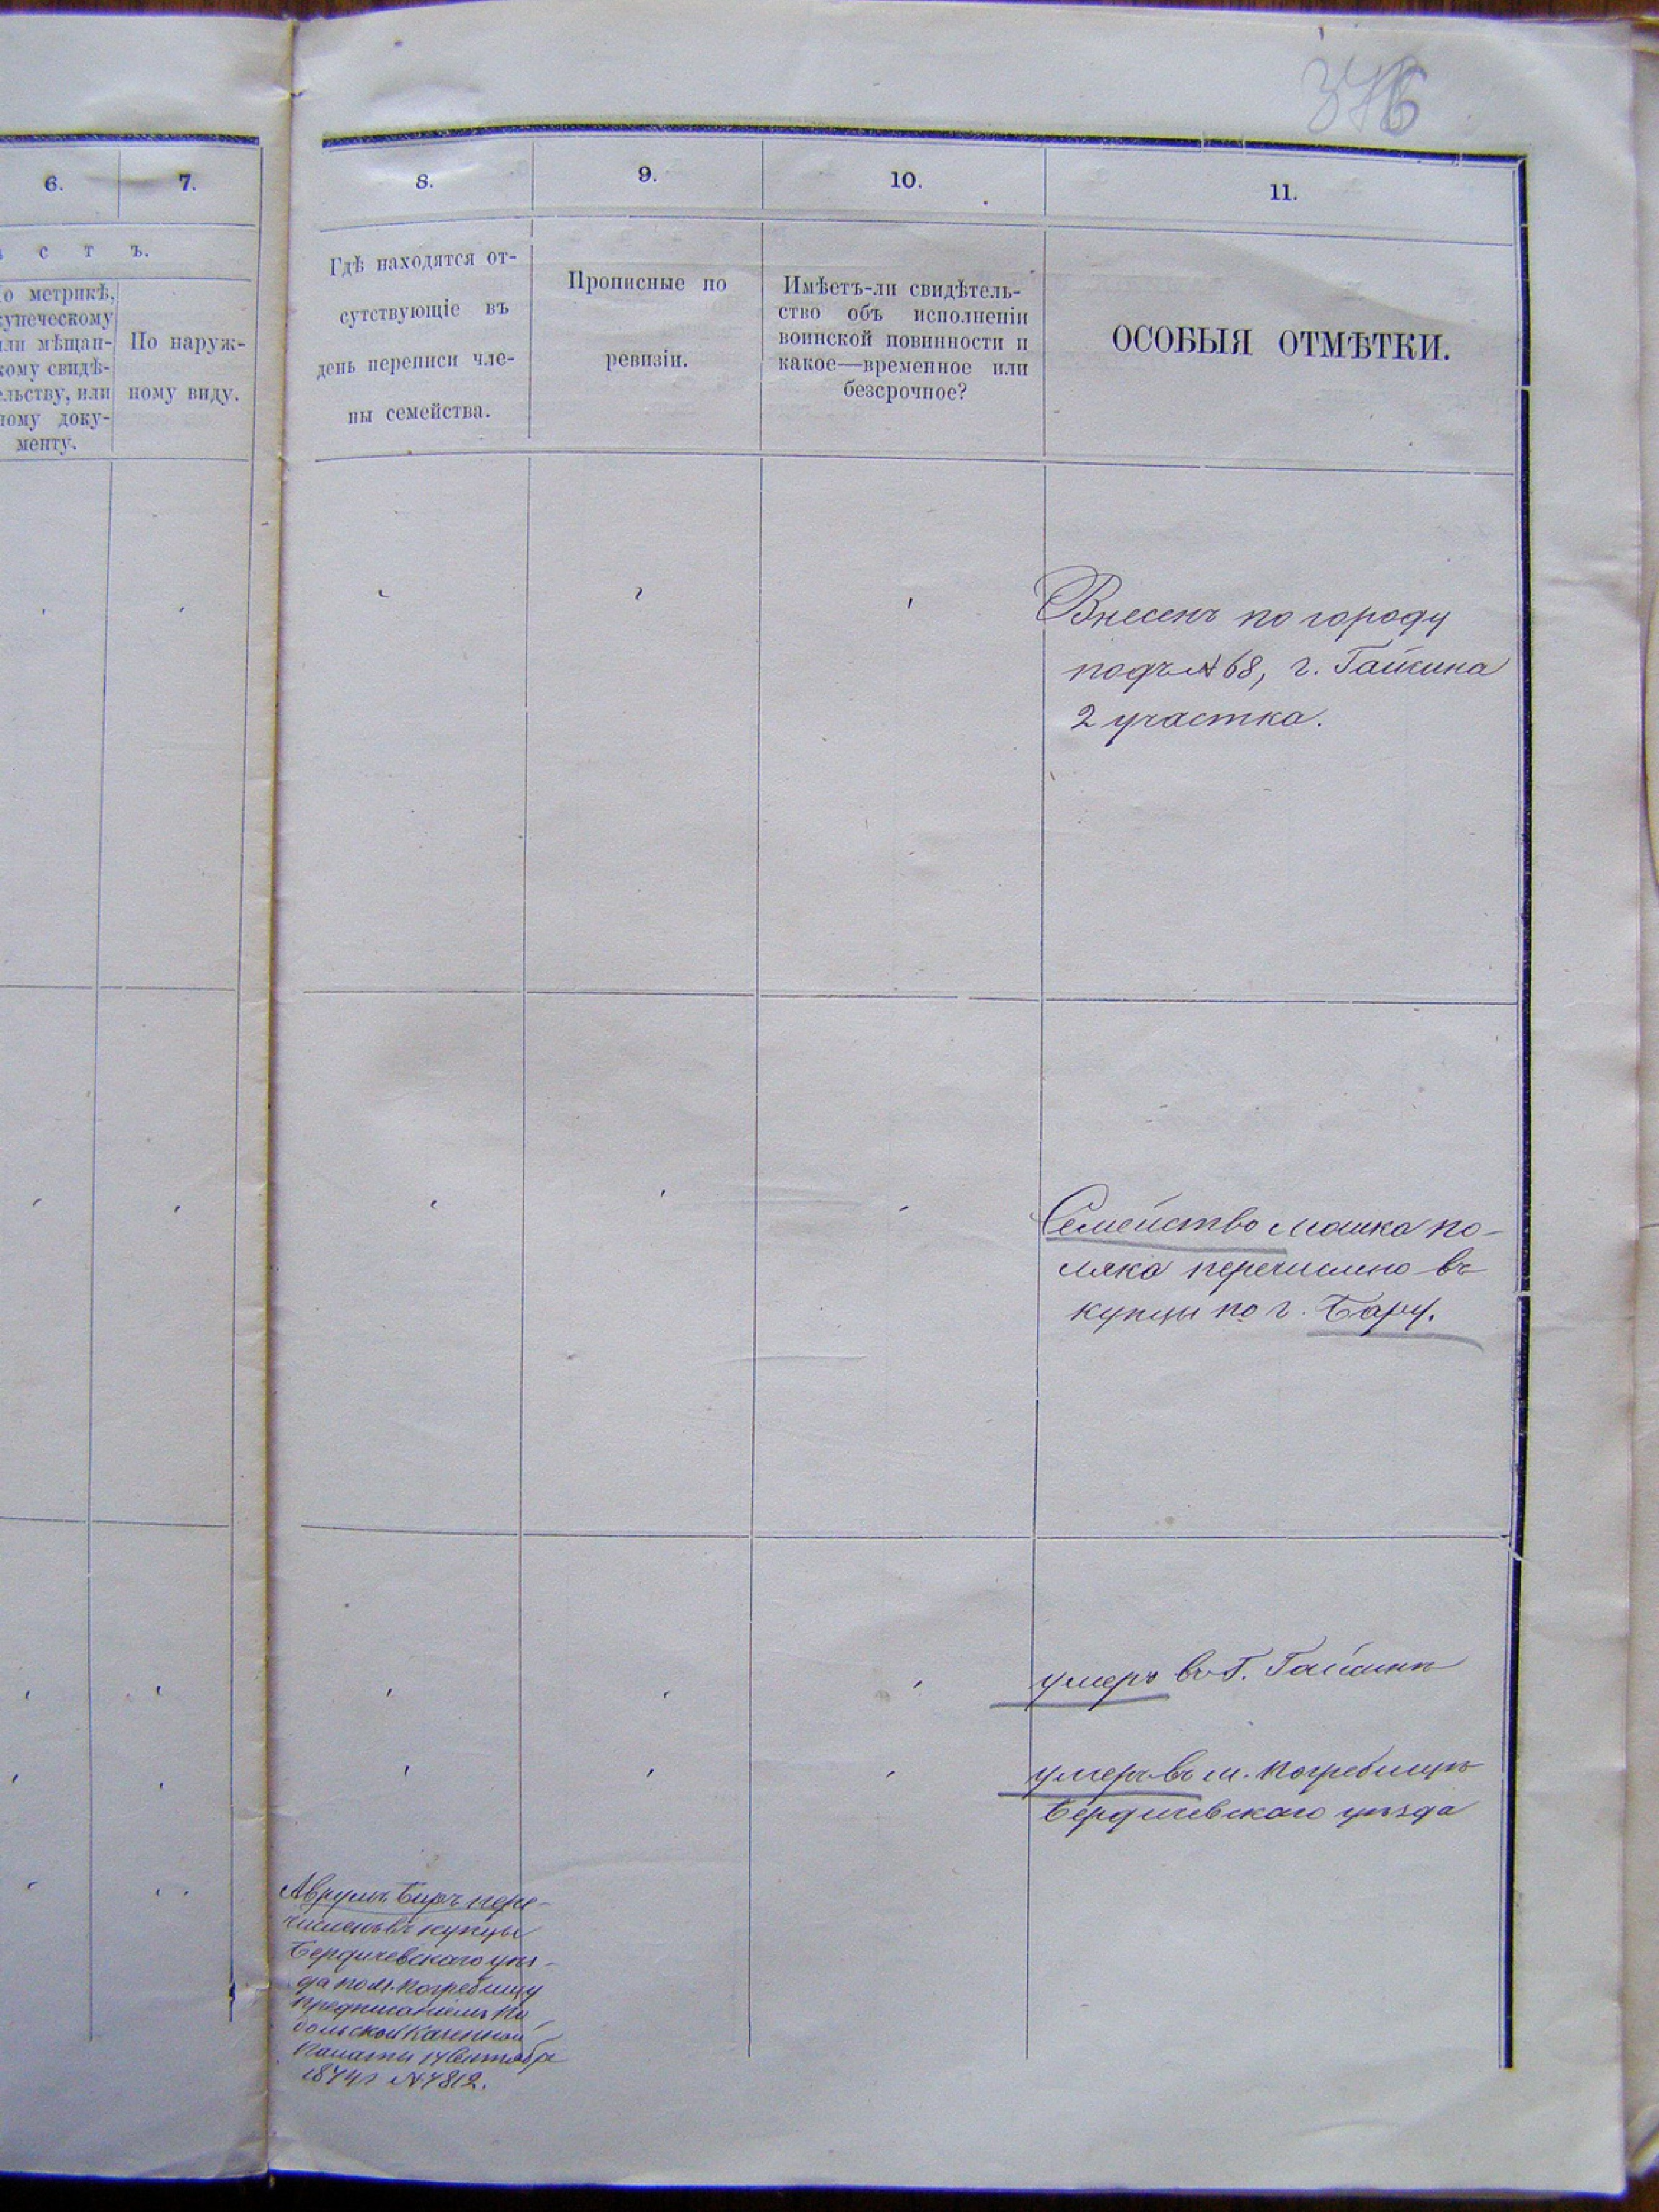 376
6.
7.
с т ъ.
о метрикѣ,
купеческому
или мѣщан-
кому свидѣ-
ельству, или
ному доку-
менту.
По наруж-
ному виду.
8.
9.
10.
11.
Гдѣ находятся от-
сутствующіе въ
день переписи чле-
ны семейства.
Прописные по
ревизіи.
Имѣетъ-ли свидѣтель-
ство объ исполненіи
воинской повинности и
какое—временное или
безсрочное?
ОСОБЫЯ ОТМѢТКИ.
Внесенъ по городу
подъ № 68, г. Гайсина
2 участка.
Семейство Мошка По-
ляка перечислено въ
купцы по г. Бару.
умеръ въ Г. Гайсинѣ
умеръ въ м. Погребищѣ
Бердичевскаго уѣзда
Аврумъ Беръ пере-
численъ въ купцы
Бердичевскаго уѣз-
да по м. Погребищу
предписаніемъ По-
дольской Казенной
Палаты 14 Сентября
1874 г № 7812.